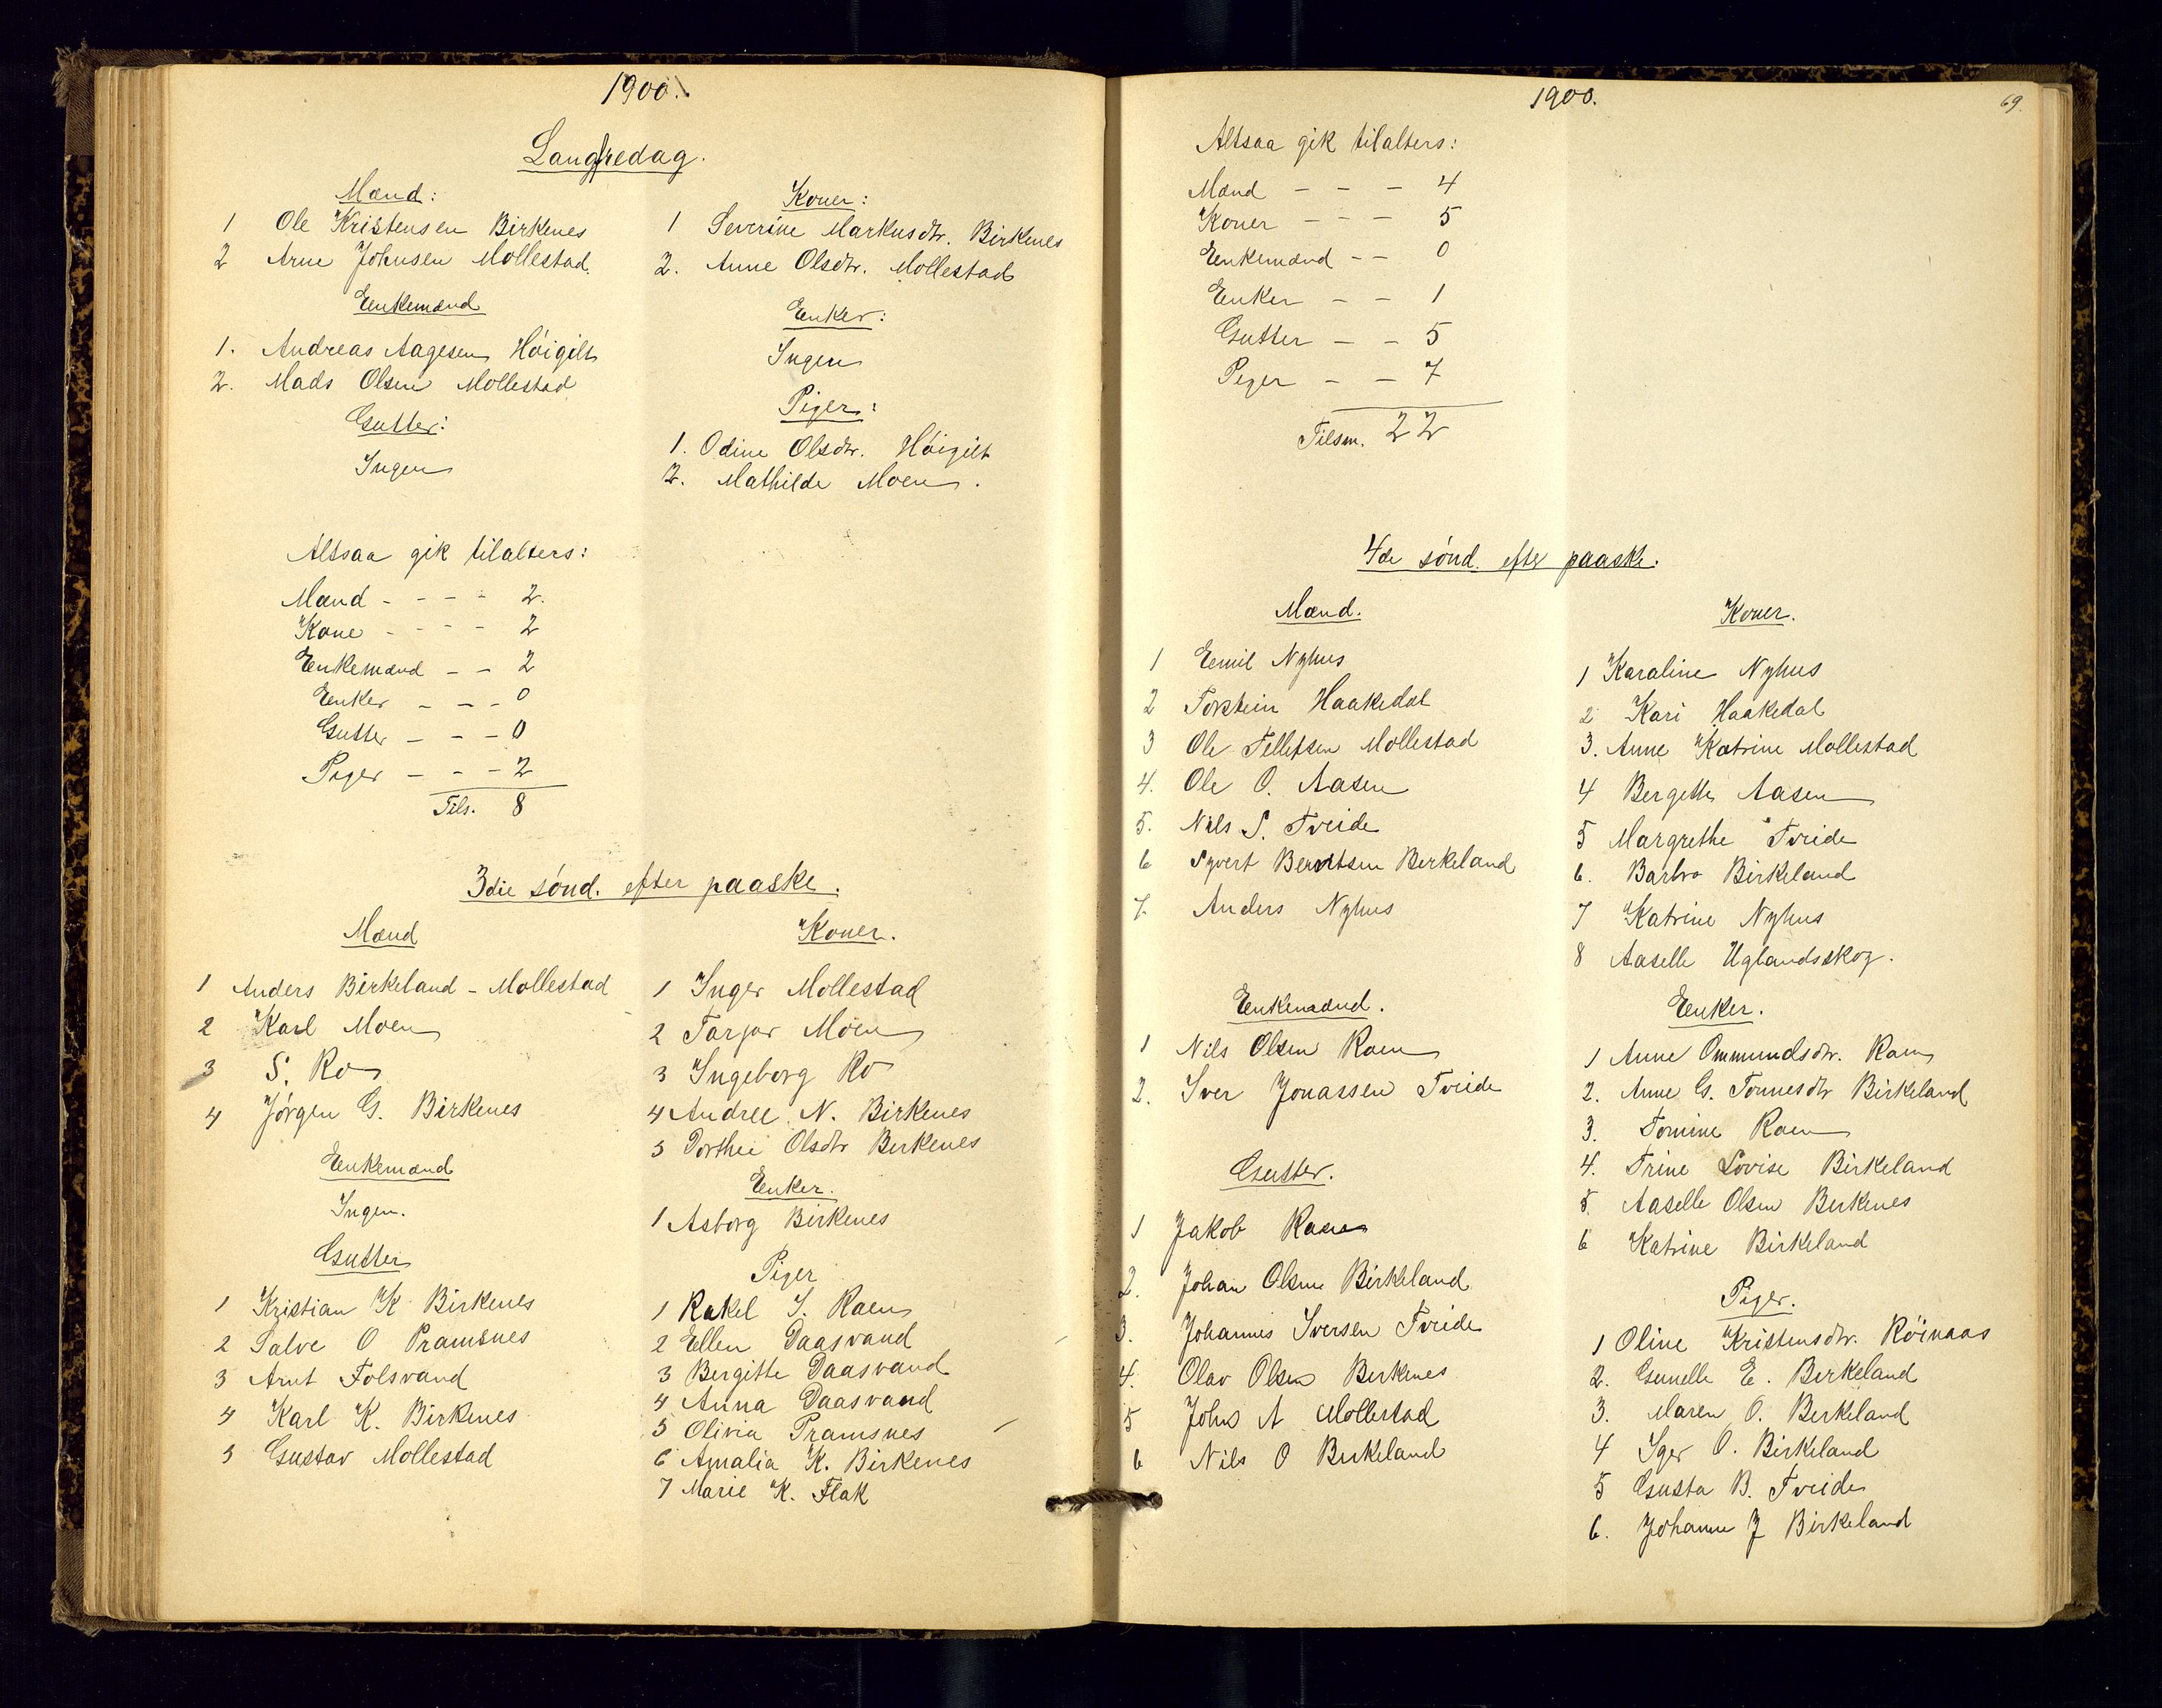 1900.
Langfredag.
Mænd:
1 Ole Kristensen Birkenes
2 Arne Johnsen Mollestad.
Enkemænd
1. Andreas Aagesen Höigilt
2. Mads Olsen Mollestad
Gutter:
Ingen
Koner:
1 Severine Markusdtr. Birkenes
2. Anne Olsdtr. Mollestad
Enker:
Ingen
Piger:
1. Odine Olsdtr. Höigilt
2. Mathilde Moen.
Altsaa gik tilalters:
Mænd - - - - 2.
Kone - - - - 2
Enkemænd - - 2
Enker - - - 0
Gutter - - - 0
Piger - - - 2
Tils. 8
3die sönd. efter paaske.
Mænd
1 Anders Birkeland - Mollestad
2 Karl Moen
3 S. Ro
4 Jörgen G. Birkenes
Enkemænd
Ingen.
Gutter
1 Kristian K Birkenes
2 Salve O Pramsnes
3 Arnt Folsvand
4 Karl K. Birkenes
5 Gustav Mollestad
Koner.
1 Inger Mollestad
2 Tarjer Moen
3 Ingeborg Ro
4 Andree N. Birkenes
5 Dorthee Olsdtr Birkenes
Enker.
1 Asborg Birkenes
Piger
1 Rakel S. Raen
2 Ellen Daasvand
3 Bergitte Daasvand
4 Anna Daasvand
5 Olivia Pramsnes
6 Amalia K. Birkenes
7 Marie K. Flak
1900.
69.
Altsaa gik tilalters:
Mænd - - - 4
Koner - - - 5
Enkemænd - - 0
Enker - - 1
Gutter - - 5
Piger - - 7
Tilsm. 22
4de sönd. efter paaske.
Mænd.
1 Emil Nyhus
2 Torstein Haakedal
3 Ole Tellefsen Mollestad
4. Ole O. Aasen
5. Nils S. Tveide
6 Syvert Berntsen Birkeland
7. Anders Nyhus
Koner.
1 Karaline Nyhus
2 Kari Haakedal
3. Anne Katrine Mollestad
4 Bergitte Aasen
5 Margrethe Tveide
6. Barbro Birkeland
7 Katrine Nyhus
8 Aaselle Uglandsskog.
Enkemænd.
1 Nils Olsen Raen
2. Iver Jonassen Tveide
Enker.
1 Anne Ommundsdtr. Raen
2. Anne G. Tonnesdtr Birkeland
3. Tomine Raen
4. Trine Lovise Birkeland
5. Aaselle Olsen Birkenes
6 Katrine Birkeland
Gutter.
1 Jakob Raen
2. Johan Olsen Birkeland
3. Johannes Iversen Tveide
4. Olav Olsen Birkenes
5 John A Mollestad
6 Nils O Birkeland
Piger.
1 Oline Kristensdtr. Röinaas
2. Gunelle E. Birkeland
3. Maren O. Birkeland
4 Iger O. Birkeland
5 Gusta B. Tveide
6. Johanne J Birkeland